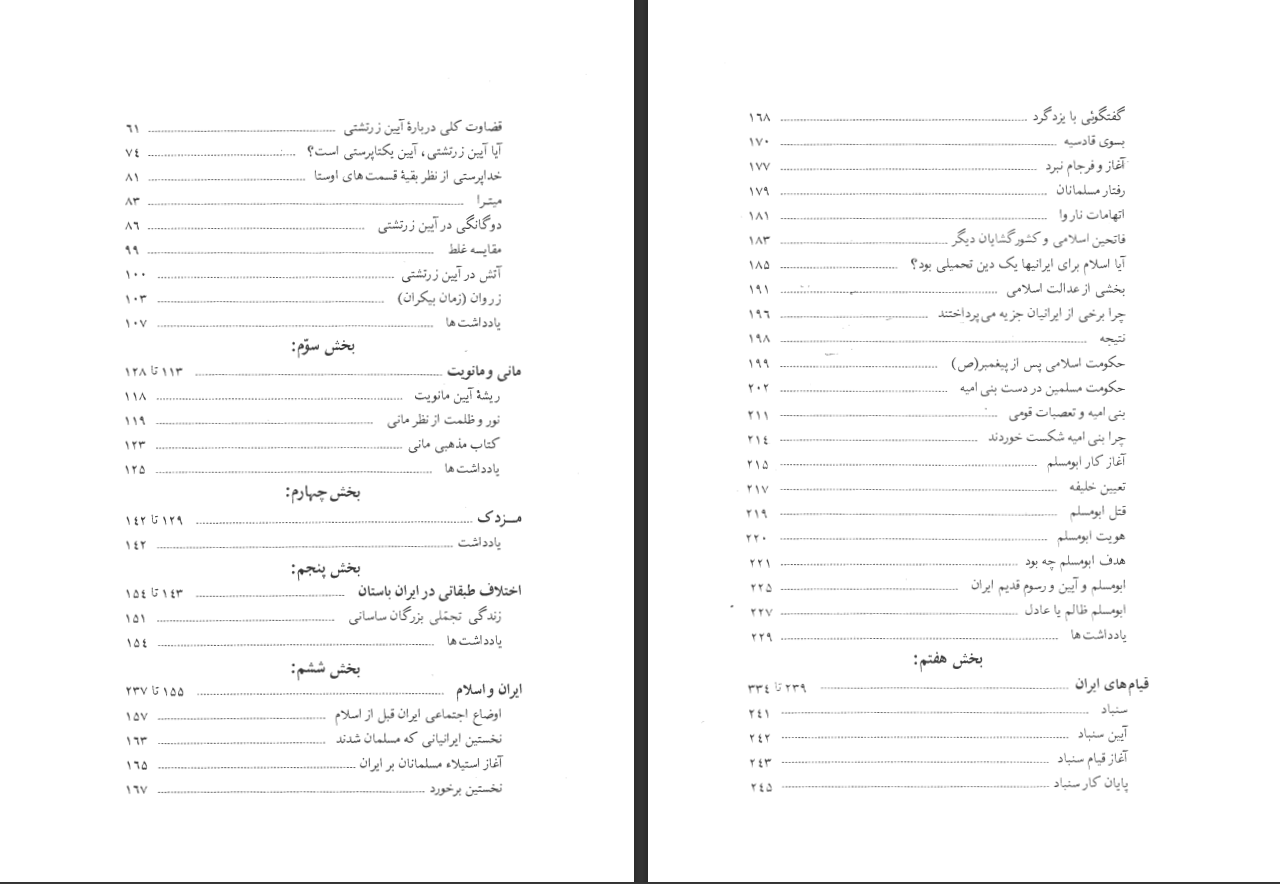 قضاوت کلی دربارۀ آیین زرتشتی ........ ۶۱
آیا آیین زرتشتی، آیین یکتاپرستی است؟ ........ ۷۴
خداپرستی از نظر بقیۀ قسمت‌های اوستا ........ ۸۱
میترا ........ ۸۳
دوگانگی در آیین زرتشتی ........ ۸۶
مقایسه غلط ........ ۹۹
آتش در آیین زرتشتی ........ ۱۰۰
زروان (زمان بیکران) ........ ۱۰۳
یادداشت‌ها ........ ۱۰۷
بخش سوّم:
مانی و مانویت ........ ۱۱۳ تا ۱۲۸
ریشۀ آیین مانویت ........ ۱۱۸
نور و ظلمت از نظر مانی ........ ۱۱۹
کتاب مذهبی مانی ........ ۱۲۳
یادداشت‌ها ........ ۱۲۵
بخش چهارم:
مـزدک ........ ۱۲۹ تا ۱۴۲
یادداشت ........ ۱۴۲
بخش پنجم:
اختلاف طبقاتی در ایران باستان ........ ۱۴۳ تا ۱۵۴
زندگی تجمّلی بزرگان ساسانی ........ ۱۵۱
یادداشت‌ها ........ ۱۵۴
بخش ششم:
ایران و اسلام ........ ۱۵۵ تا ۲۳۷
اوضاع اجتماعی ایران قبل از اسلام ........ ۱۵۷
نخستین ایرانیانی که مسلمان شدند ........ ۱۶۳
آغاز استیلاء مسلمانان بر ایران ........ ۱۶۵
نخستین برخورد ........ ۱۶۷
گفتگوئی با یزدگرد ........ ۱۶۸
بسوی قادسیه ........ ۱۷۰
آغاز و فرجام نبرد ........ ۱۷۷
رفتار مسلمانان ........ ۱۷۹
اتهامات ناروا ........ ۱۸۱
فاتحین اسلامی و کشورگشایان دیگر ........ ۱۸۳
آیا اسلام برای ایرانیها یک دین تحمیلی بود؟ ........ ۱۸۵
بخشی از عدالت اسلامی ........ ۱۹۱
چرا برخی از ایرانیان جزیه می‌پرداختند ........ ۱۹۶
نتیجه ........ ۱۹۸
حکومت اسلامی پس از پیغمبر(ص) ........ ۱۹۹
حکومت مسلمین در دست بنی امیه ........ ۲۰۲
بنی امیه و تعصبات قومی ........ ۲۱۱
چرا بنی امیه شکست خوردند ........ ۲۱۴
آغاز کار ابومسلم ........ ۲۱۵
تعیین خلیفه ........ ۲۱۷
قتل ابومسلم ........ ۲۱۹
هویت ابومسلم ........ ۲۲۰
هدف ابومسلم چه بود ........ ۲۲۱
ابومسلم و آیین و رسوم قدیم ایران ........ ۲۲۵
ابومسلم ظالم یا عادل ........ ۲۲۷
یادداشت‌ها ........ ۲۲۹
بخش هفتم:
قیام‌های ایران ........ ۲۳۹ تا ۳۳۴
سنباد ........ ۲۴۱
آیین سنباد ........ ۲۴۲
آغاز قیام سنباد ........ ۲۴۳
پایان کار سنباد ........ ۲۴۵